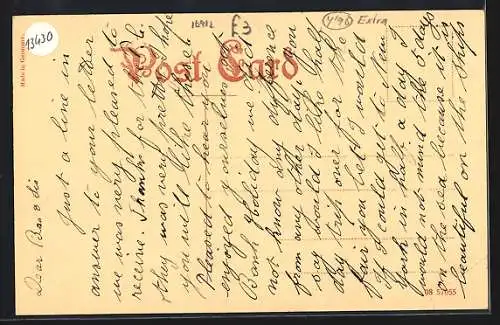 13430
16912
E3
4/96 Extra
Made in Germany
Post Card
Dear Bro & Sis
Just a line in
answer to your letter
we was very pleased to
receive. Thanks for the P.C.
they was very pretty I hope
you will like this
Pleased to hear you
enjoyed yourselves on
Bank Holiday we did
not know any difference
from any other day
say trip over for the
day
fair you bet I would
if I could get to New
York in half a day I
would not mind the 5 days
on the sea because it is
beautiful on the Ships
08 57055